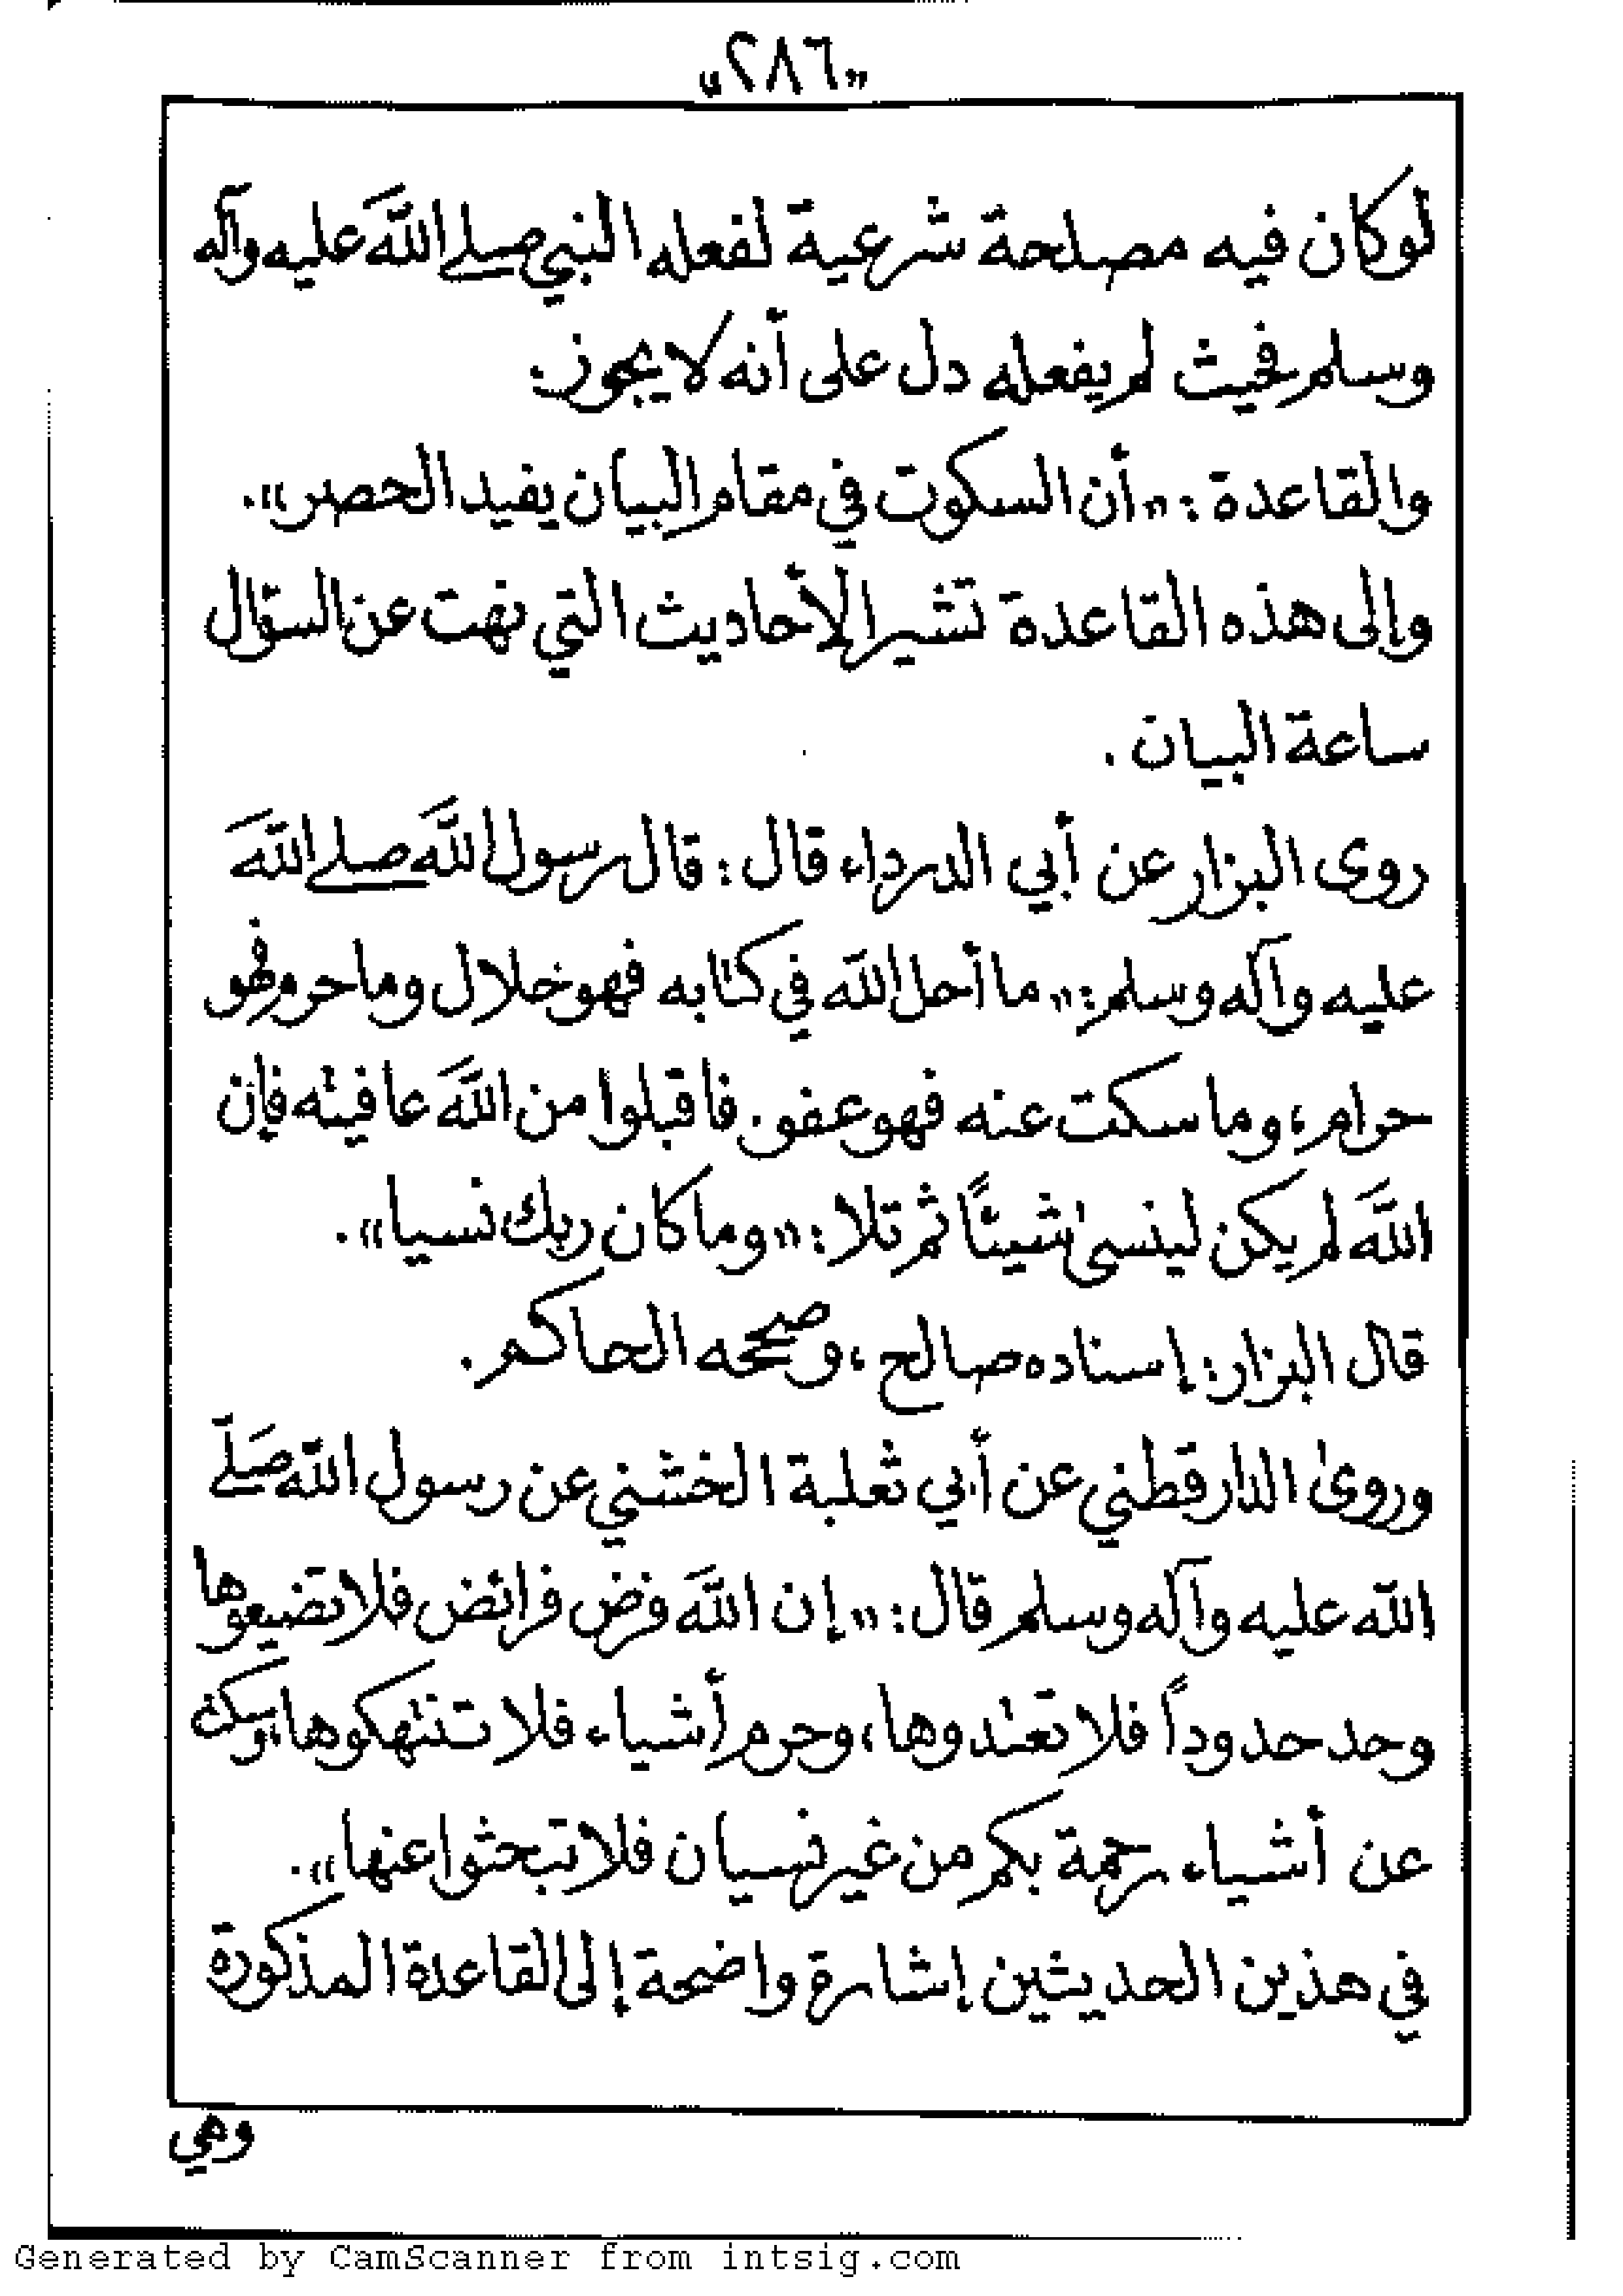 «٢٨٦»
لوكان فيه مصلحة شرعية لفعله النبي صلى اللّٰه عليه وآله
وسلم فحيث لم يفعله دل على أنه لا يجوز.
والقاعدة : «أن السكوت في مقام البيان يفيد الحصر».
وإلى هذه القاعدة تشير الأحاديث التي نهت عن السؤال
ساعة البيان .
روى البزار عن أبي الدرداء قال: قال رسول اللّٰه صلى اللّٰه
عليه وآله وسلم: «ما أحل اللّٰه في كتابه فهو حلال وما حرم فهو
حرام، وما سكت عنه فهو عفو. فاقبلوا من اللّٰه عافيته فإن
اللّٰه لم يكن لينسىٰ شيئًا ثم تلا: «وما كان ربك نسيا».
قال البزار: إسناده صالح، وصححه الحاكم.
وروىٰ الدارقطني عن أبي ثعلبة الخشني عن رسول اللّٰه صَلّى
اللّٰه عليه وآله وسلم قال: «إن اللّٰه فرض فرائض فلا تضيعوها
وحد حدوداً فلا تعتدوها، وحرم أشياء فلا تنتهكوها، وسكت
عن أشياء رحمة بكم من غير نسيان فلا تبحثوا عنها».
في هذين الحديثين إشارة واضحة إلى القاعدة المذكورة
وهي
Generated by CamScanner from intsig.com